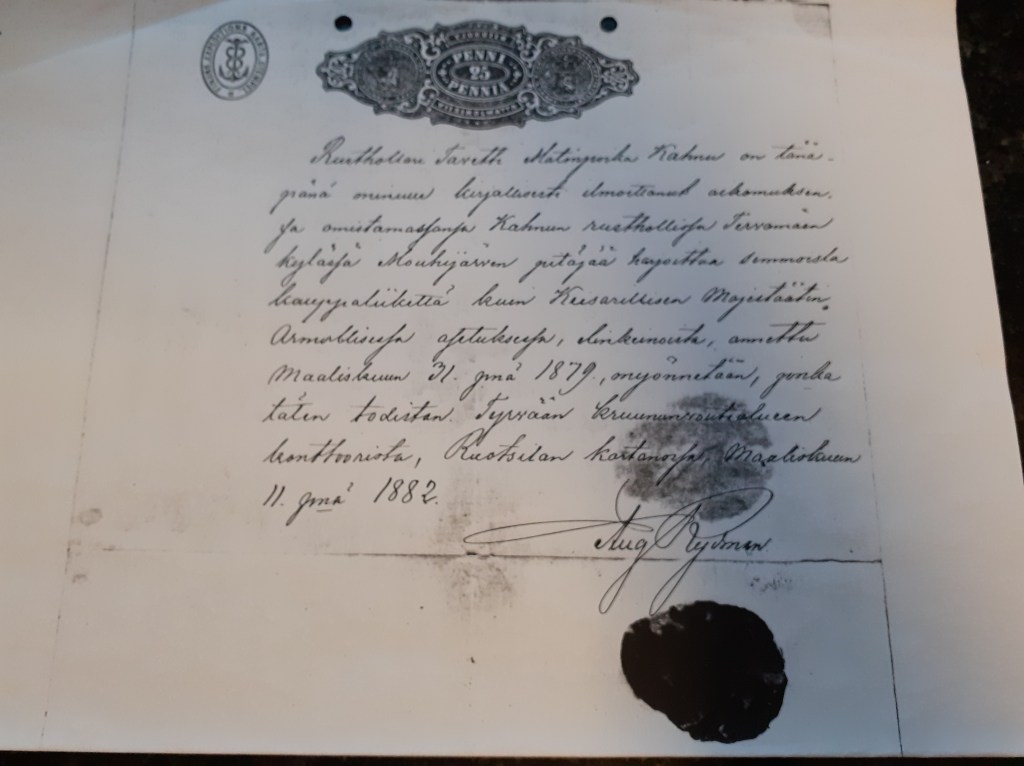 PENNI
25
PENNIÄ
Rusthollari Taveth Matinpoika Kahnu on tänä-
pänä minuue kirjallisesti ilmoittanut aekomuksen,
sa omistamassansa Kahnun rusthollissa Tervamäen
kylässä Mouhijärven pitäjää harjoittaa semmoista
kauppaliikettä kuin Keisarillisen Majestäätin
Armollisessa asetuksessa, elinkeinoista, annettu
Maaliskuun 31. pnä 1879., myönnetään, jonka
täten todistan. Tyrvään kruununvoutialueen
konttoorista, Ruotsilan kartanossa, Maaliskuun
11. pnä 1882.
Aug Rydman